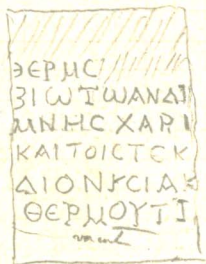 ϿΕΡΜC
ΒΙΩΤΩΑΝΔΙ
ΜΝΗCΧΑΡΙ
ΚΑΙΤΟΙCΤΕΚ
ΔΙΟΝΥCΙΑΚ
ΘΕΡΜΟΥΤΙ
vacat